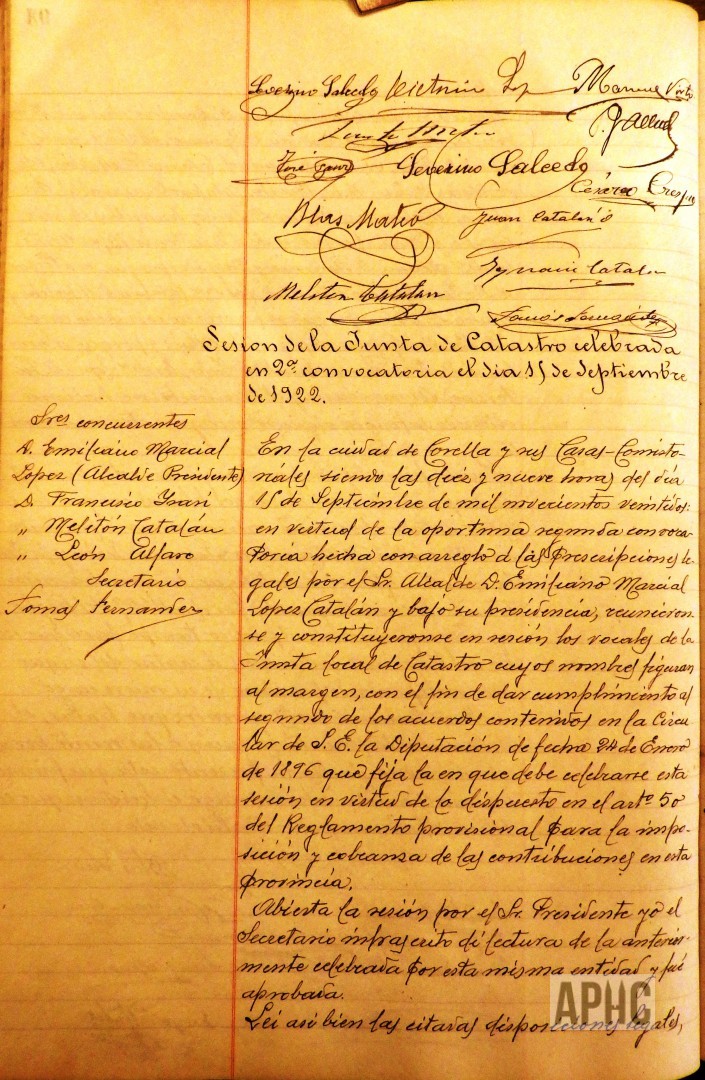 Severino Salcedo Victorin Manuel
José
Severino Salcedo
Cesáreo Crespo
Blas Mateo Juan Catalán
Ygnacio Catalan
Meliton Catalan
Sesion de la Junta de Catastro celebrada
en 2ª convocatoria el dia 15 de Septiembre
de 1922.
Sres concurrentes
D. Emiliano Marcial
Lopez (Alcalde Presidente)
D. Francisco
„ Melitón Catalán
„ León Alfaro
Secretario
Tomas Fernandez
En la ciudad de Corella y sus Casas-Consisto-
riales siendo las diez y nueve horas del dia
15 de Septiembre de mil novecientos veintidos:
en virtud de la oportuna segunda convoca-
toria hecha con arreglo á las prescripciones le-
gales por el Sr. Alcalde D. Emiliano Marcial
Lopez Catalán y bajo su presidencia, reunieron-
se y constituyeronse en sesión los vocales de la
Junta local de Catastro cuyos nombres figuran
al margen, con el fin de dar cumplimiento al
segundo de los acuerdos contenidos en la Circu
lar de S. E. la Diputación de fecha 24 de Enero
de 1896 que fija la en que debe celebrarse esta
sesión en virtud de lo dispuesto en el artº 50
del Reglamento provisional para la impo-
sición y cobranza de las contribuciones en esta
provincia.
Abierta la sesión por el Sr. Presidente yo el
Secretario infrascrito di lectura de la anterior-
mente celebrada por esta misma entidad y fué
aprobada.
Lei asi bien las citadas disposiciones legales,
APHC